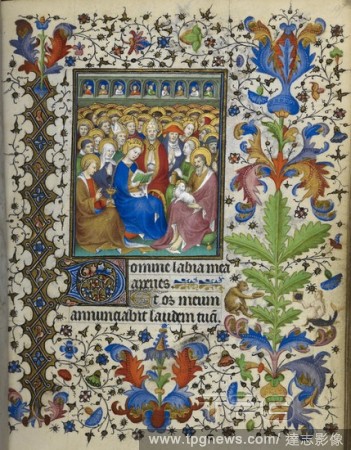 Domine labia mea
aperies
Et os meum
annunciabit laudem tuā.
www.tpgnews.com/ 達志影像